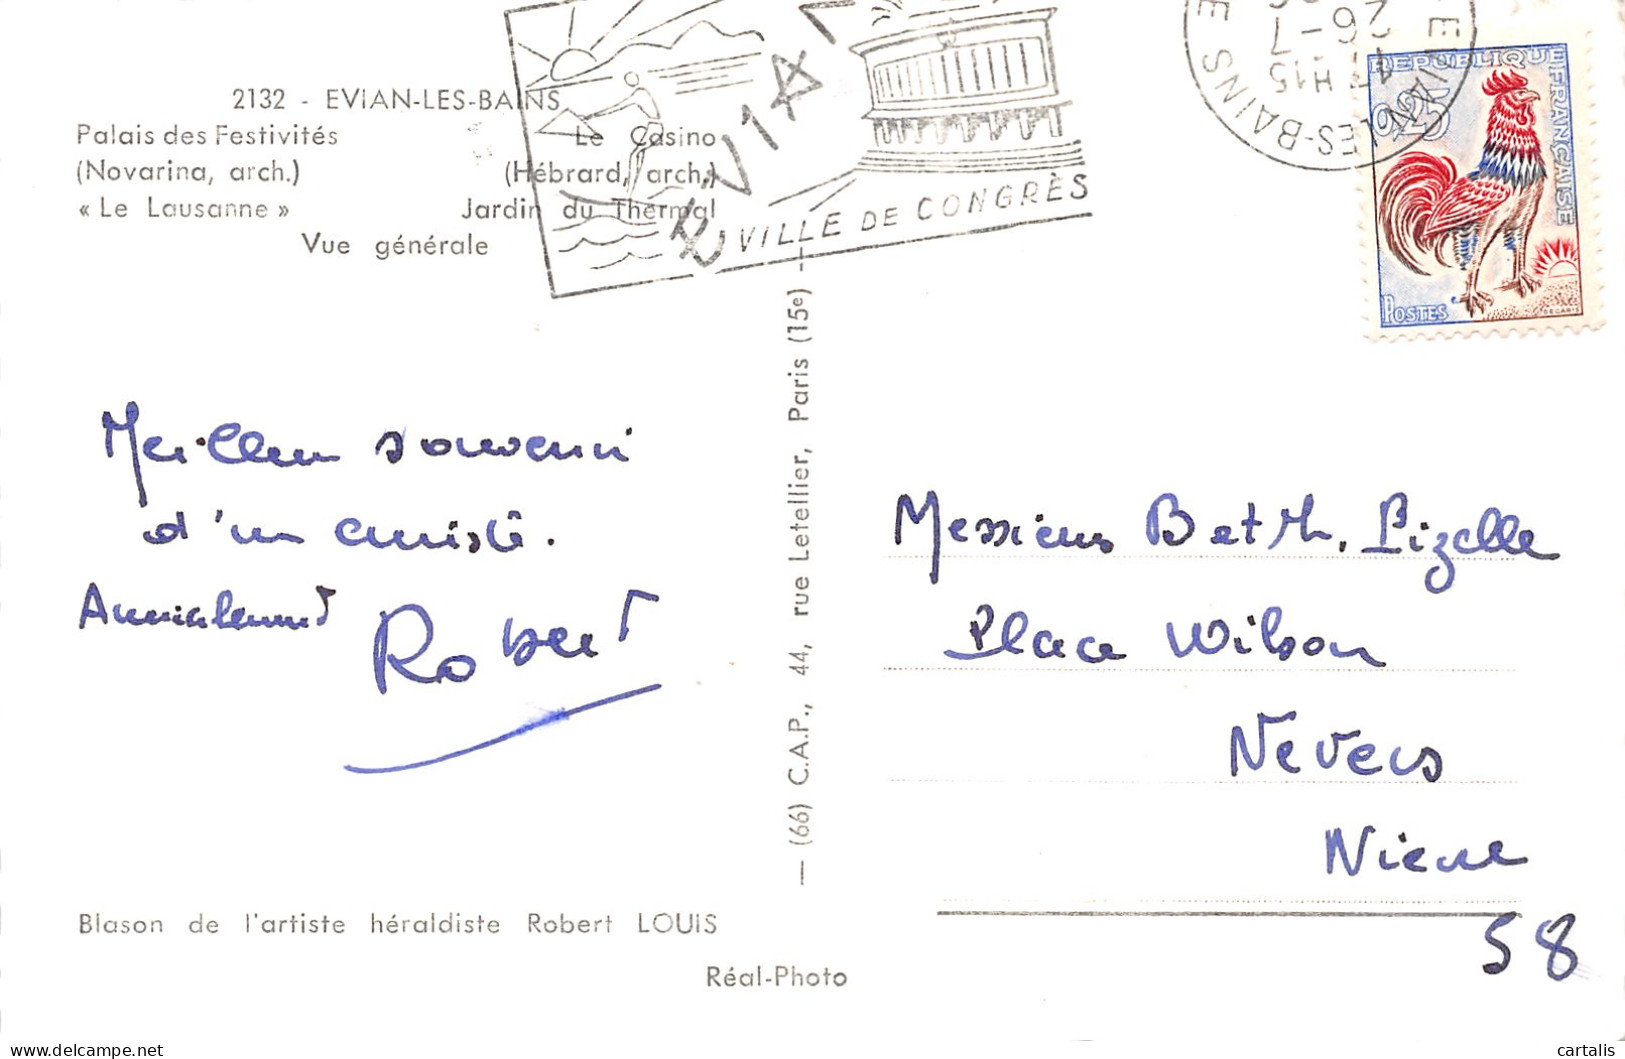 2132 - EVIAN-LES-BAINS
Palais des Festivités
(Novarina, arch.)
« Le Lausanne »
Le Casino
(Hébrard, arch.)
Jardin du Thermal
Vue générale
EVIAN
VILLE DE CONGRÈS
EVIAN LES-BAINS
H15
26-7
REPUBLIQUE FRANÇAISE
0,25
POSTES
DECARIS
Meilleur souvenir
d'un amisté.
Amicalement
Robert
— (66) C.A.P., 44, rue Letellier, Paris (15e) —
Messieurs B et Th. Lizelle
Place Wilson
Nevers
Nievre
58
Blason de l'artiste héraldiste Robert LOUIS
Réal-Photo
delcampe.net
cartalis